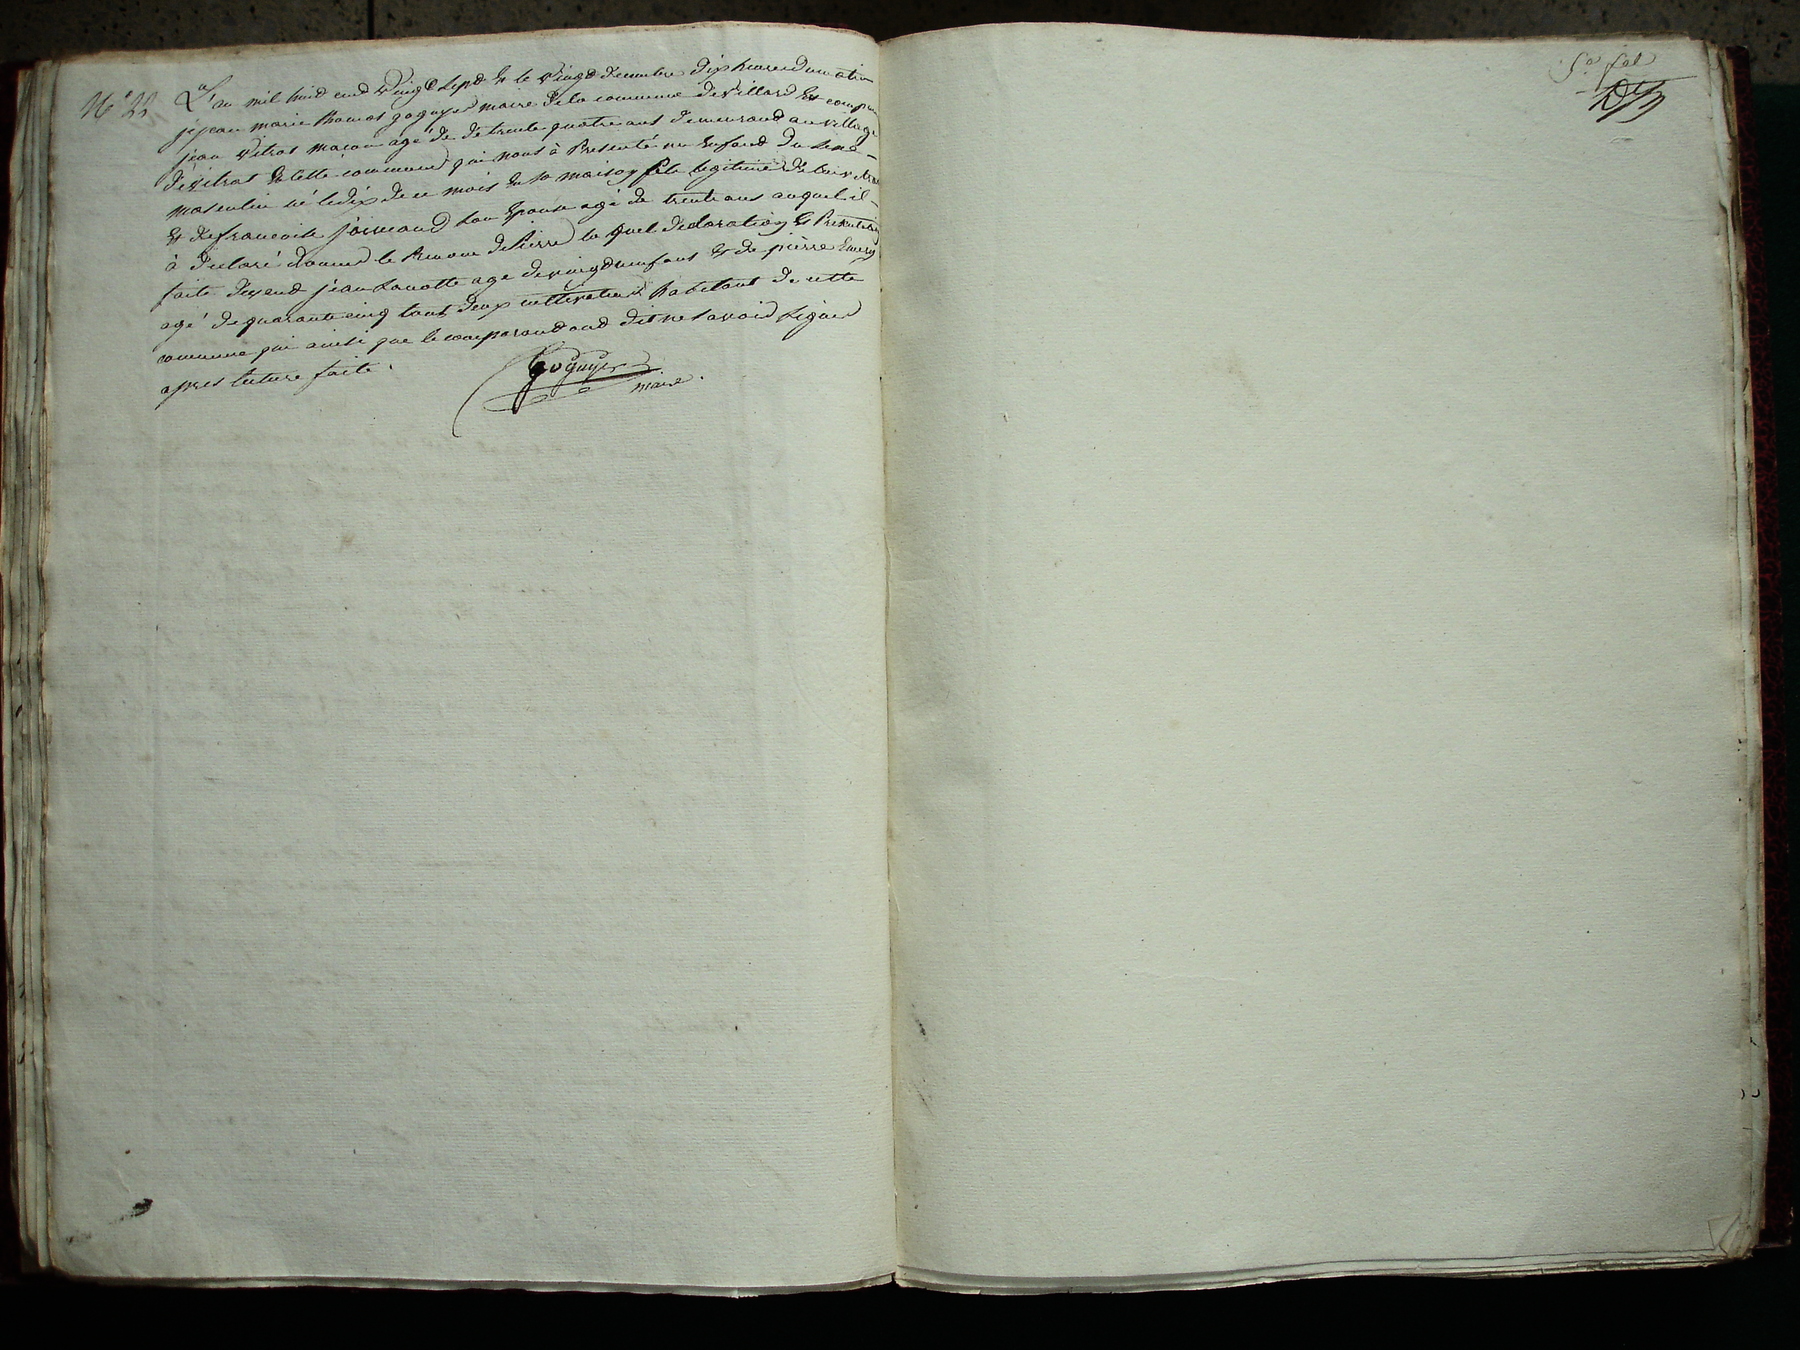 N° 22
L'an mil huid cend vingt sept & le vingt decembre dix heures du matin
je jean marie thomas goguyer maire de la commune de villard Est comparu
jean vitrat macon agé de de trente quatre ans demeurand au village
de vitrat de cette commune qui nous à Presenté un Enfand du sexe
masculin né le dix de ce mois En sa maison fils legitime de lui
& de francoise son Epouse age de trente ans auquel il
à declaré donner le Prenom de Pierre la quel declaration & Presentation
faite devend jean Lanotte age de vingt neuf ans & de pierre
agé de quarante cinq tous deux cultivateurs habitant de cette
commune qui ainsi que le comparand ond dit ne savoir signer
apres lecture faite.
Goguyer
maire.
fol